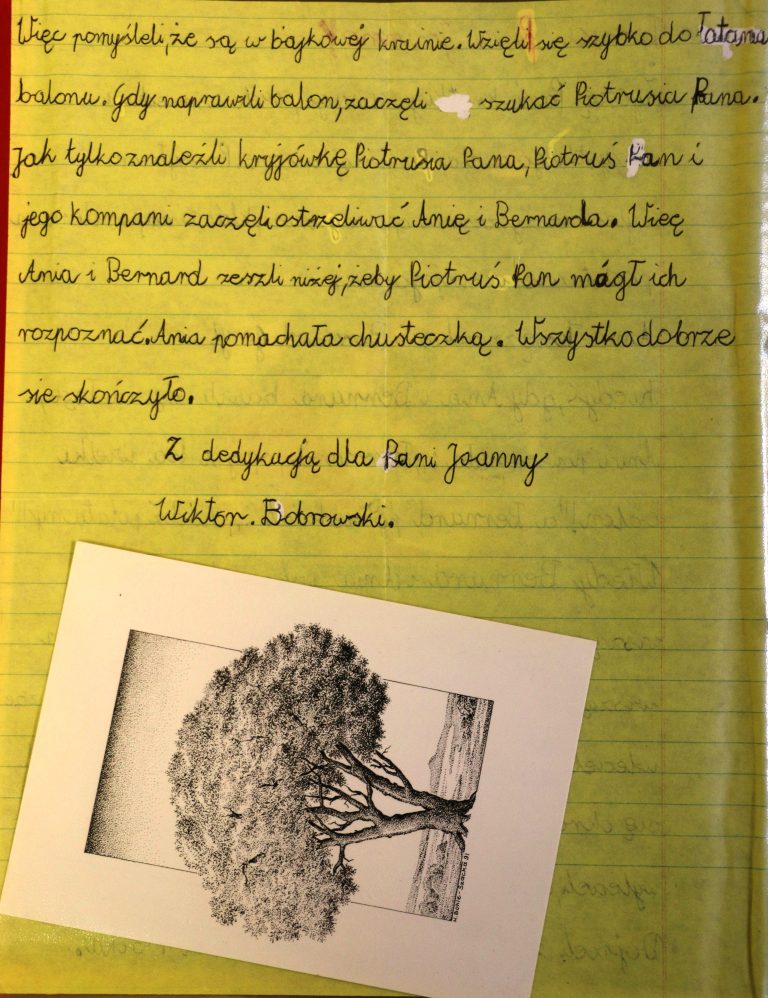 Więc pomyśleli, że są w bajkowej krainie. Wzięli się szybko do łatania
balonu. Gdy naprawili balon, zaczęli szukać Piotrusia Pana.
Jak tylko znaleźli kryjówkę Piotrusia Pana, Piotruś Pan i
jego kompani zaczęli ostrzeliwać Anię i Bernarda. Więc
Ania i Bernard zeszli niżej, żeby Piotruś Pan mógł ich
rozpoznać. Ania pomachała chusteczką. Wszystko dobrze
się skończyło.
Z dedykacją dla Pani Joanny
Wiktor. Bobrowski.